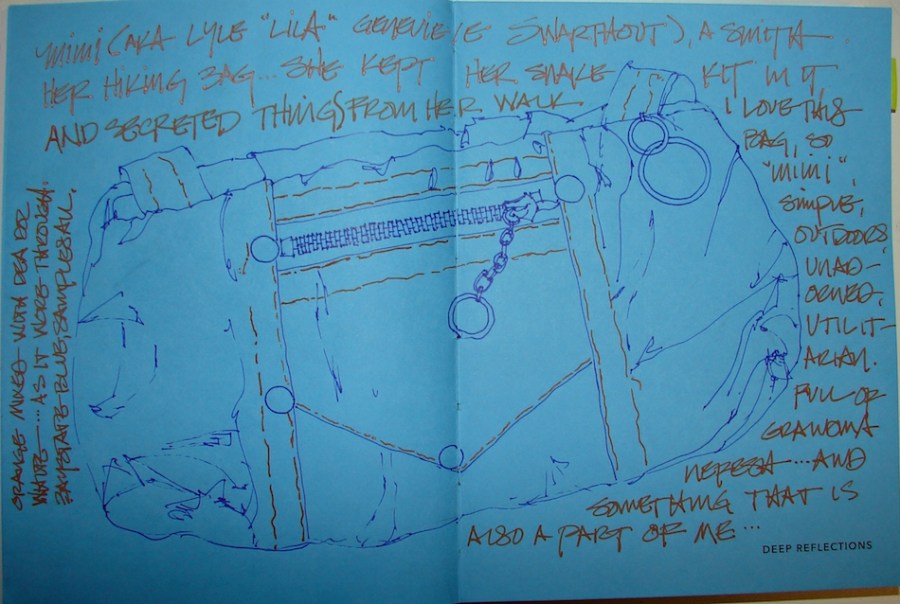 MIMI (AKA LYLE "LILA" GENEVIEVE SWARTHOUT), A SMITH
HER HIKING BAG... SHE KEPT HER SNAKE KIT IN IT
AND SECRETED THINGS FROM HER WALK.
I LOVE THIS
BAG, SO
"MIMI",
SIMPLE,
OUTDOORS,
UNAD-
ORNED,
UTILIT-
ARIAN.
FULL OF
GRANDMA
NERESA...AND
SOMETHING THAT IS
ALSO A PART OF ME...
ORANGE MIXED WITH
... AS IT WORE THROUGH.
BLUE, SAMPLES ALL.
DEEP REFLECTIONS